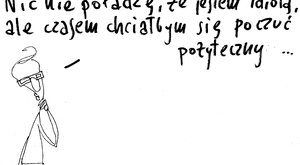 Nic nie poradzę, że jestem idiotą,
ale czasem chciałbym się poczuć
pożyteczny ...